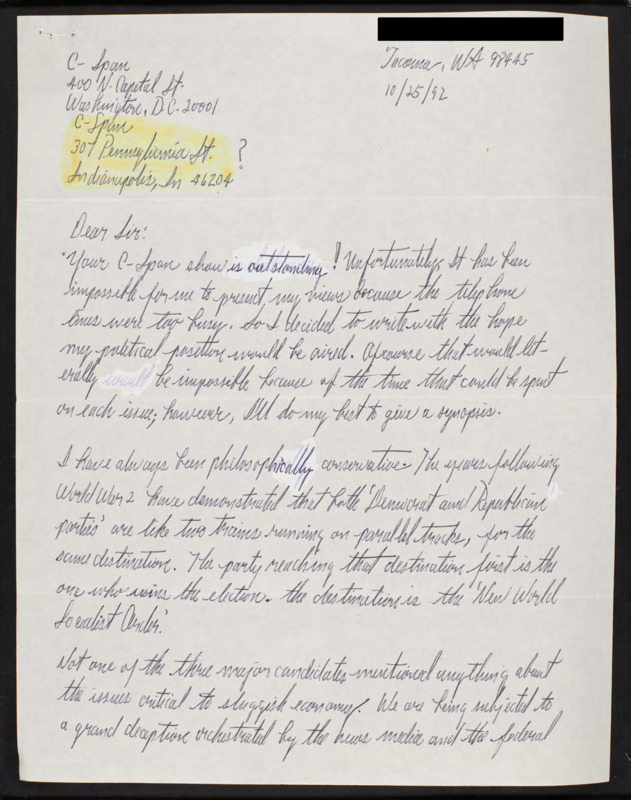 Tacoma, WA 98445
10/25/92
C-Span
400 N. Capital St.
Washington, D.C. 20001
C-Span
307 Pennsylvania St. ?
Indianapolis, In 46204
Dear Sir:
Your C-Span show is outstanding! Unfortunately, It has been
impossible for me to present my views because the telephone
lines were too busy. So I decided to write with the hope
my political position would be aired. Ofcourse that would lit-
erally would be impossible because of the time that could be spent
on each issue; however, I'll do my best to give a synopsis.
I have always been philosophically conservative. The years following
World War 2 have demonstrated that both 'Democrat and Republican
parties' are like two trains running on parallel tracks, for the
same destination. The party reaching that destination first is the
one who wins the election. the destination is the 'New World
Socialist Order.'
Not one of the three major candidates mentioned anything about
the issues critical to sluggish economy. We are being subjected to
a grand deception orchestrated by the news media and the federal